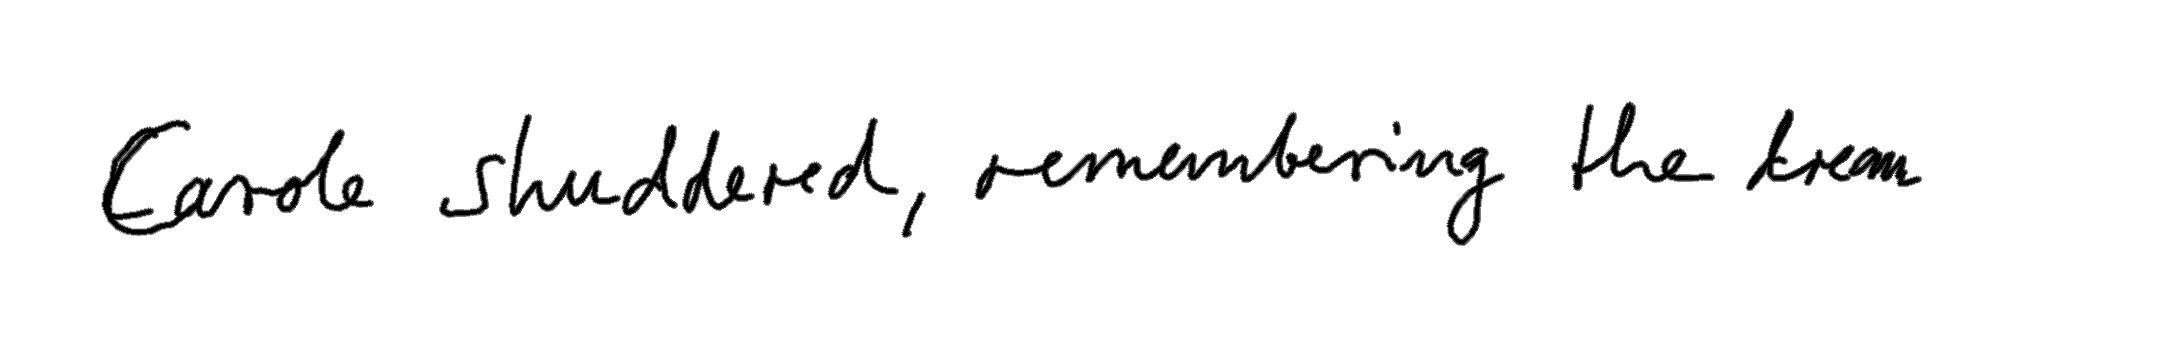 Carole shuddered, remembering the dream